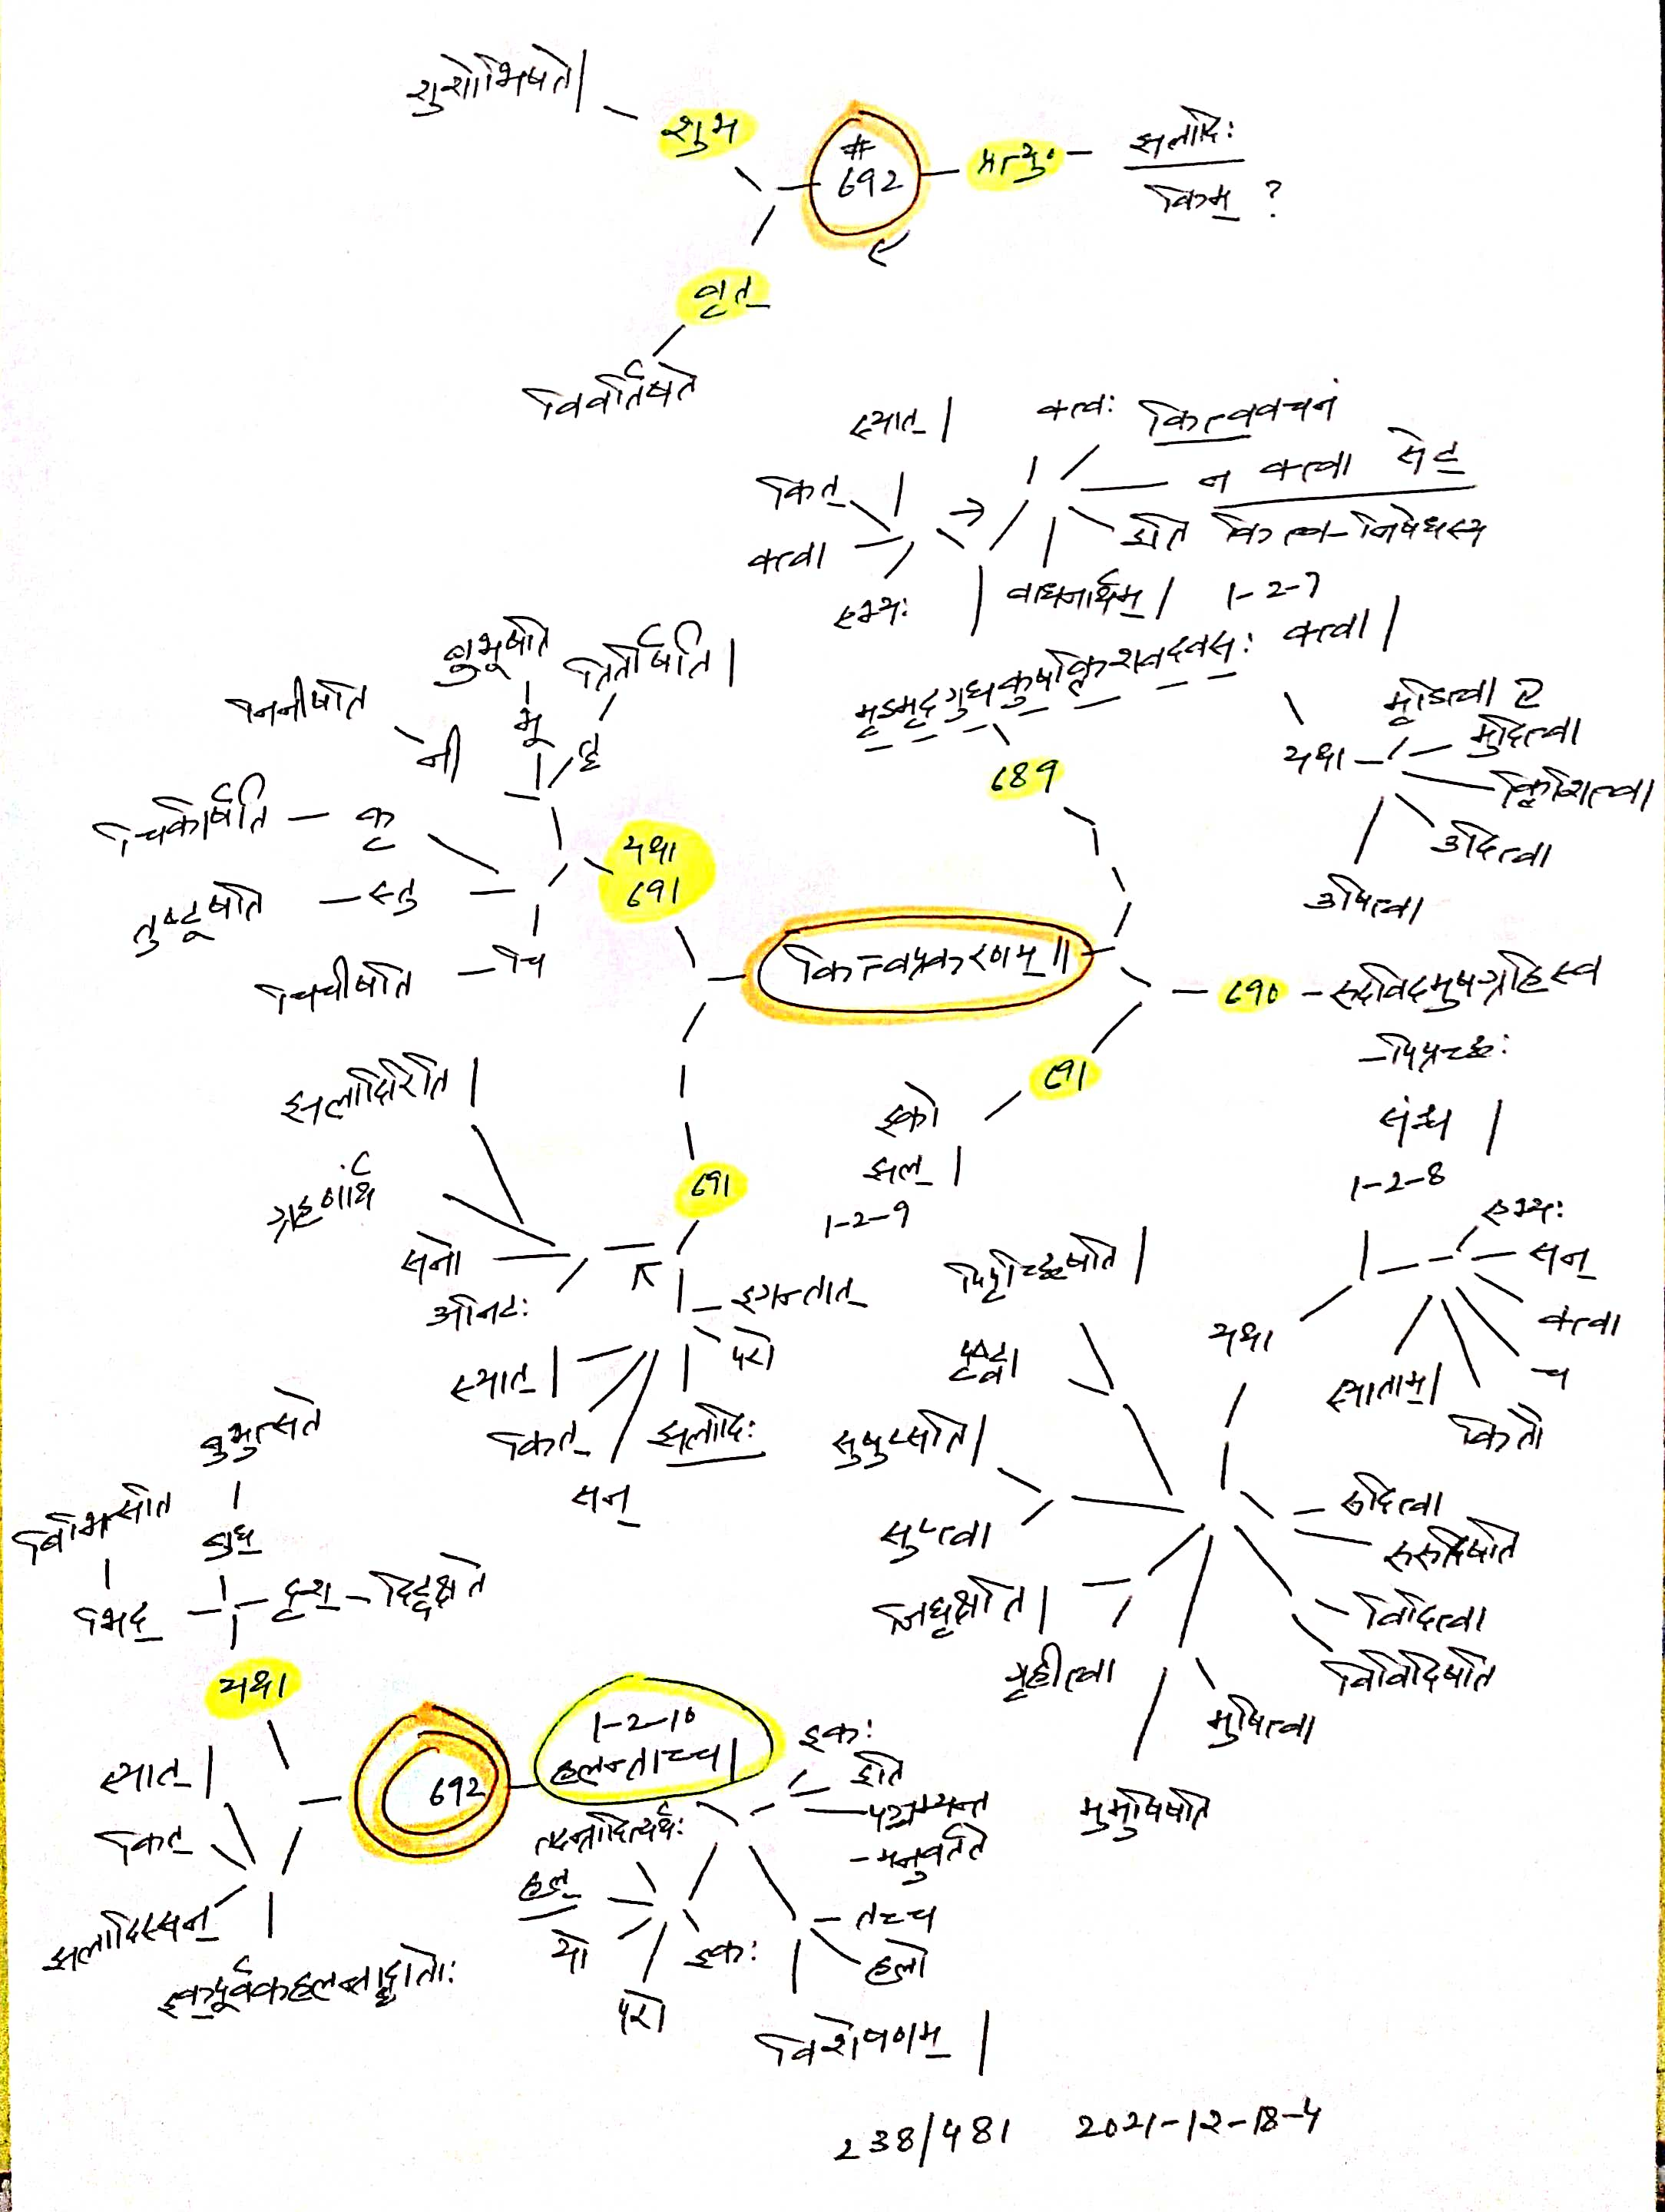 शुशोभिषते।
शुभ
#
692
प्रत्यु०
झलादिः
किम् ?
वृत्
विवर्तिषते
स्यात्।
कित्
क्त्वा
एभ्यः
क्त्वः
कित्त्ववचनं
न क्त्वा सेट्
इति कित्त्व-निषेधस्य
बाधनार्थम्।
1-2-7
मृडमृदगुधकुषक्लिशवदवसः क्त्वा।
689
यथा
मृडित्वा २
मुदित्वा
क्लिशित्वा
उदित्वा
उषित्वा
बुभूषति
भू
तितीर्षति।
निनीषति
नी
चिकीर्षति - कृ
तुष्टूषति - स्तु
चिचीषति - चि
यथा
691
कित्त्वप्रकरणम्॥
690 - रुदविदमुषग्रहिस्व
-पिप्रच्छः
संश्च।
1-2-8
691
इको
झल्।
1-2-9
एभ्यः
सन्
क्त्वा
च
कितौ
स्याताम्।
यथा
झलादिरिति।
ग्रहणार्थं
सनो
अनिटः
691
इगन्तात्
परो
झलादिः
सन्
कित्
स्यात्।
पिपृच्छिषति।
पृष्ट्वा
सुषुप्सति।
सुप्त्वा
जिघृक्षति।
गृहीत्वा
मुमुषिषति
मुषित्वा
रुदित्वा
रुरुदिषति
विदित्वा
विविदिषति
बुभुत्सते
बुध्
बिभित्सति
भिद्
दृश् - दिदृक्षते
यथा
692
1-2-10
हलन्ताच्च।
स्यात्।
कित्
झलादिस्सन्
इक्पूर्वकहलन्ताद्धातोः
इकः
इति
पञ्चम्यन्त
-मनुवर्तते
तच्च
हलो
विशेषणम्।
इकः
परो
यो
हल्
तदन्तादित्यर्थः
238/481 2021-12-18-4